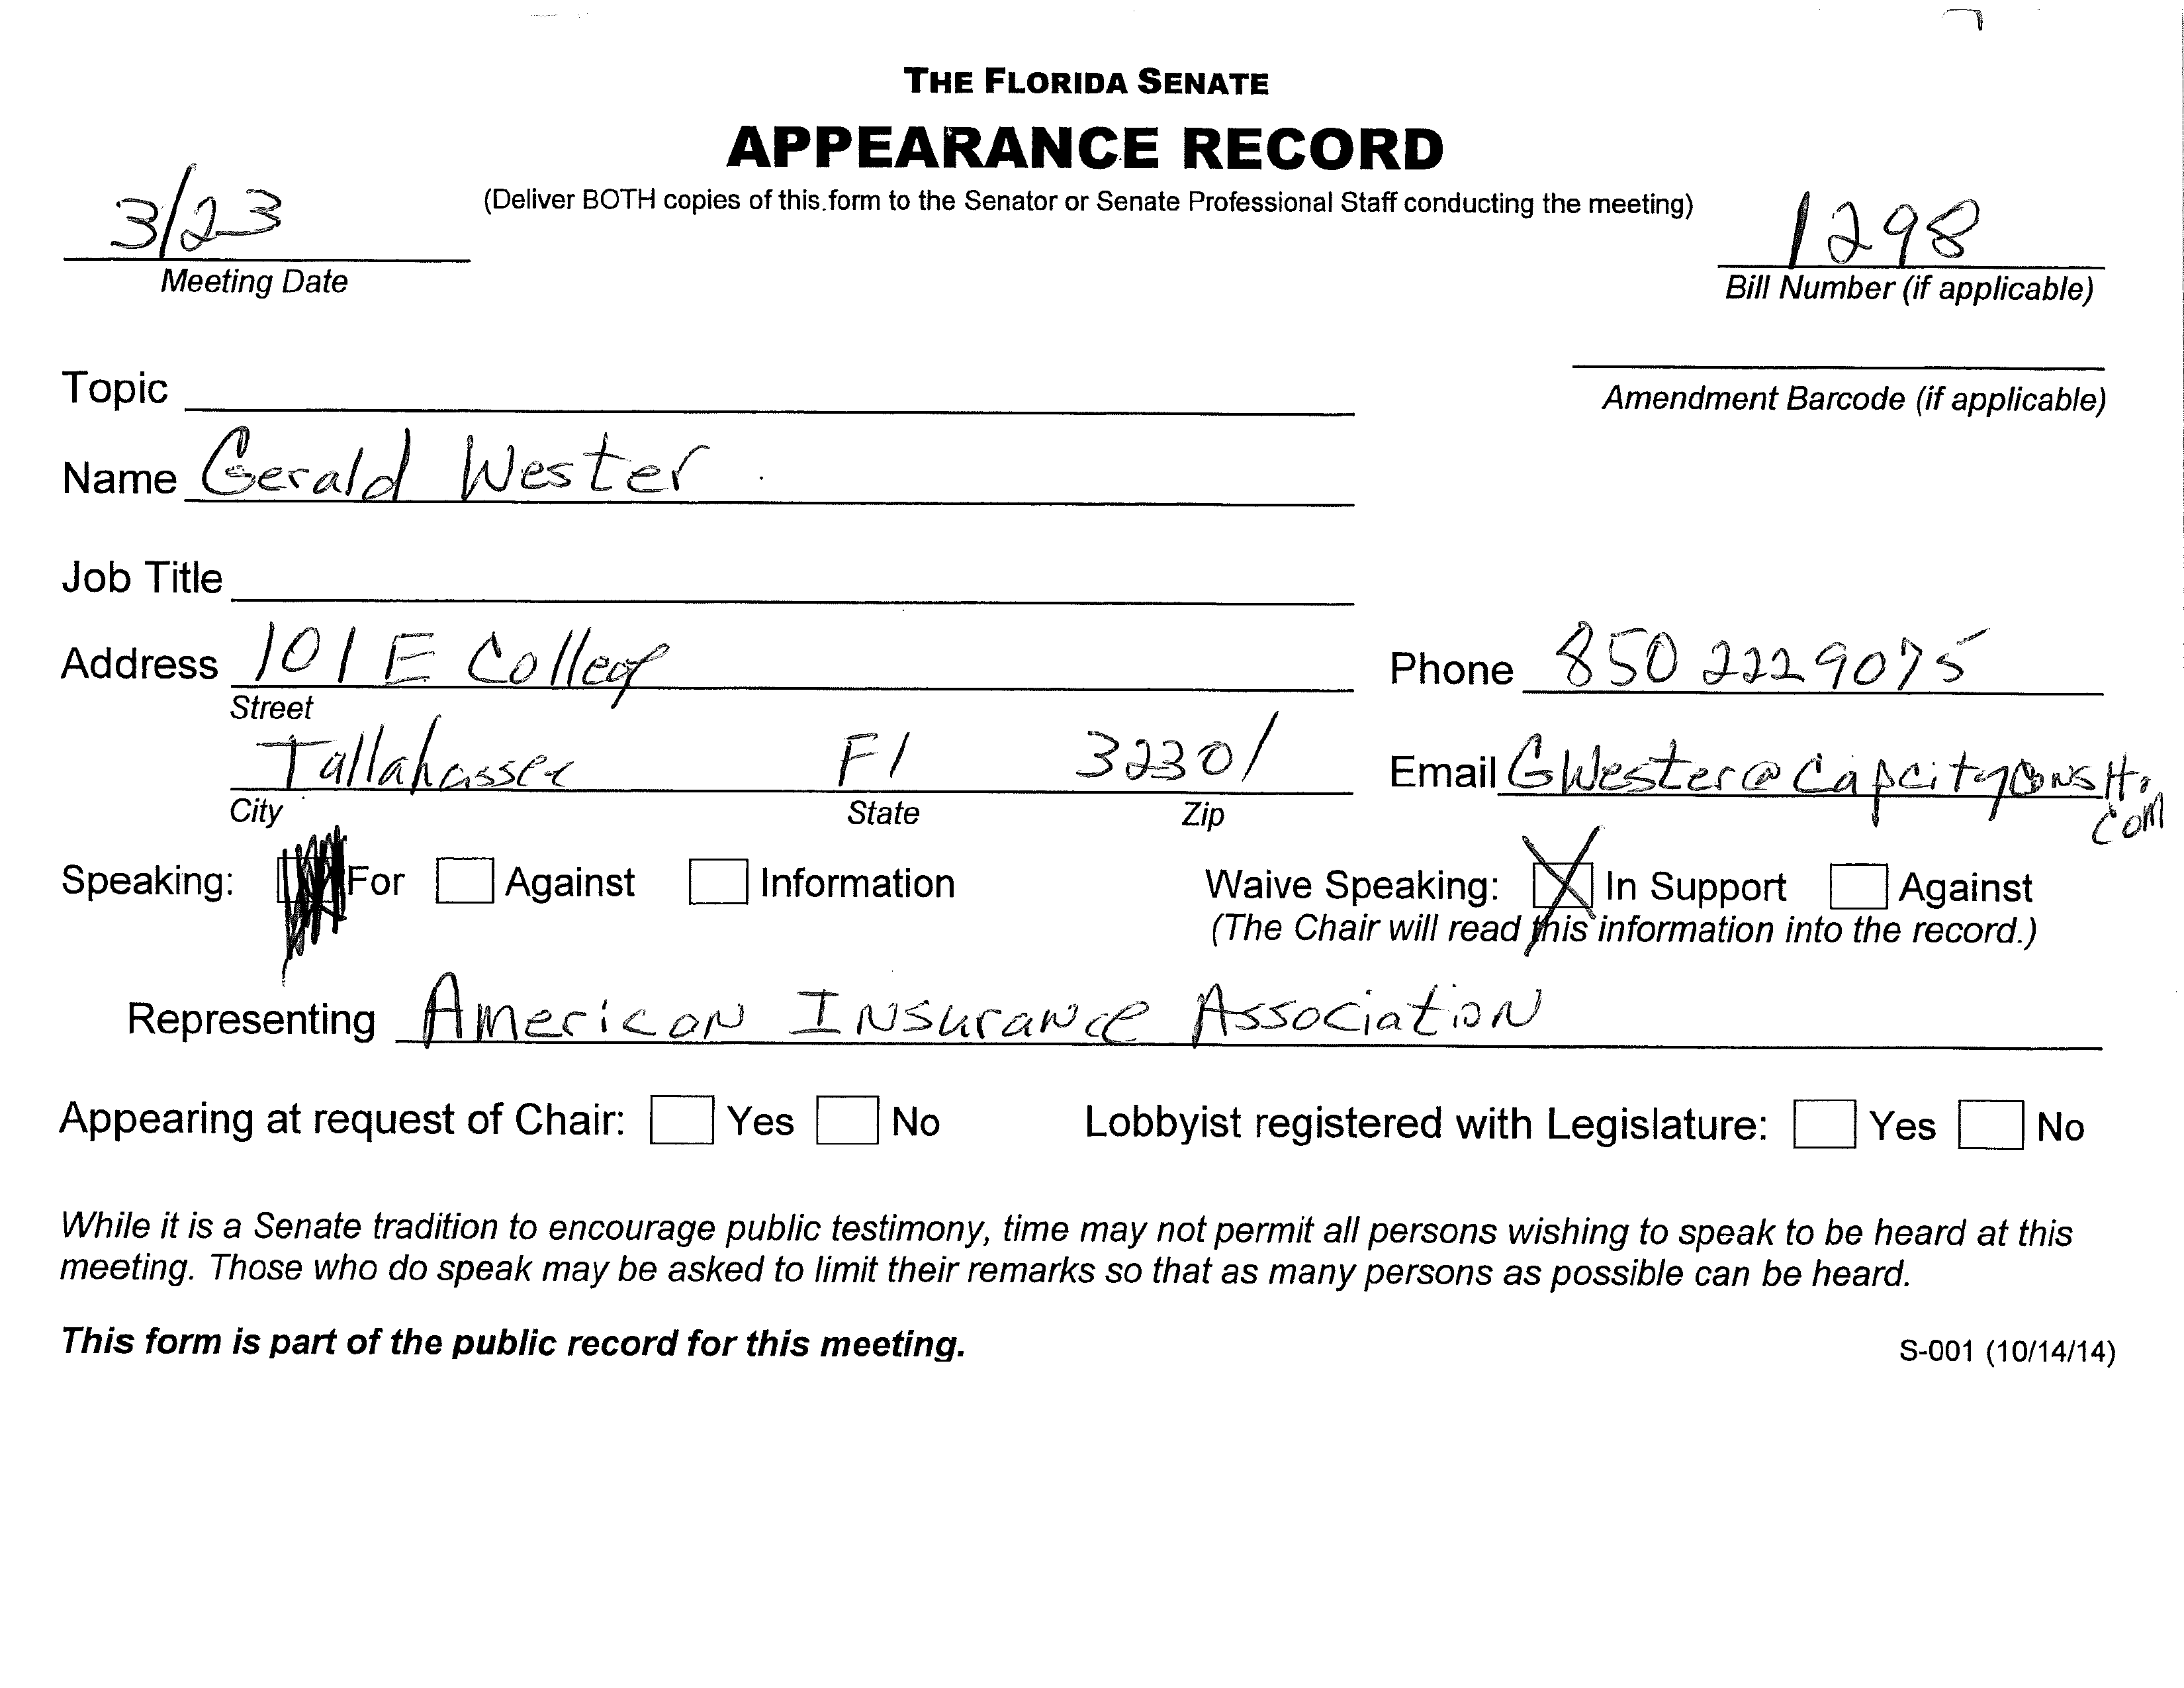 THE FLORIDA SENATE
APPEARANCE RECORD
(Deliver BOTH copies of this form to the Senator or Senate Professional Staff conducting the meeting)
3/23
Meeting Date
1298
Bill Number (if applicable)
Amendment Barcode (if applicable)
Topic
Name Gerald Wester
Job Title
Address 101 E College
Street
Phone 850 2229075
Tallahassee Fl 32301
City State Zip
Email GWester@Capcityconslt.com
Speaking: For Against Information
Waive Speaking: In Support Against
(The Chair will read this information into the record.)
Representing American Insurance Association
Appearing at request of Chair: Yes No
Lobbyist registered with Legislature: Yes No
While it is a Senate tradition to encourage public testimony, time may not permit all persons wishing to speak to be heard at this
meeting. Those who do speak may be asked to limit their remarks so that as many persons as possible can be heard.
This form is part of the public record for this meeting.
S-001 (10/14/14)